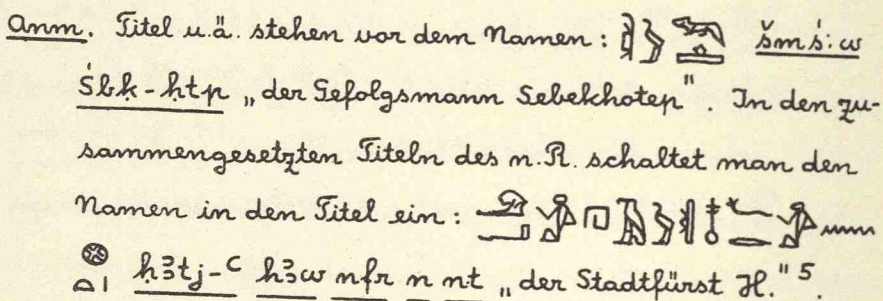 Anm. Titel u.ä. stehen vor dem Namen : šmś:w
Śbk - ḥtp „der Gefolgsmann Sebekhotep". In den zu-
sammengesetzten Titeln des n.R. schaltet man den
Namen in den Titel ein :
ḥꜣtj-ꜥ ḥꜣw nfr n nt „der Stadtfürst H." 5.